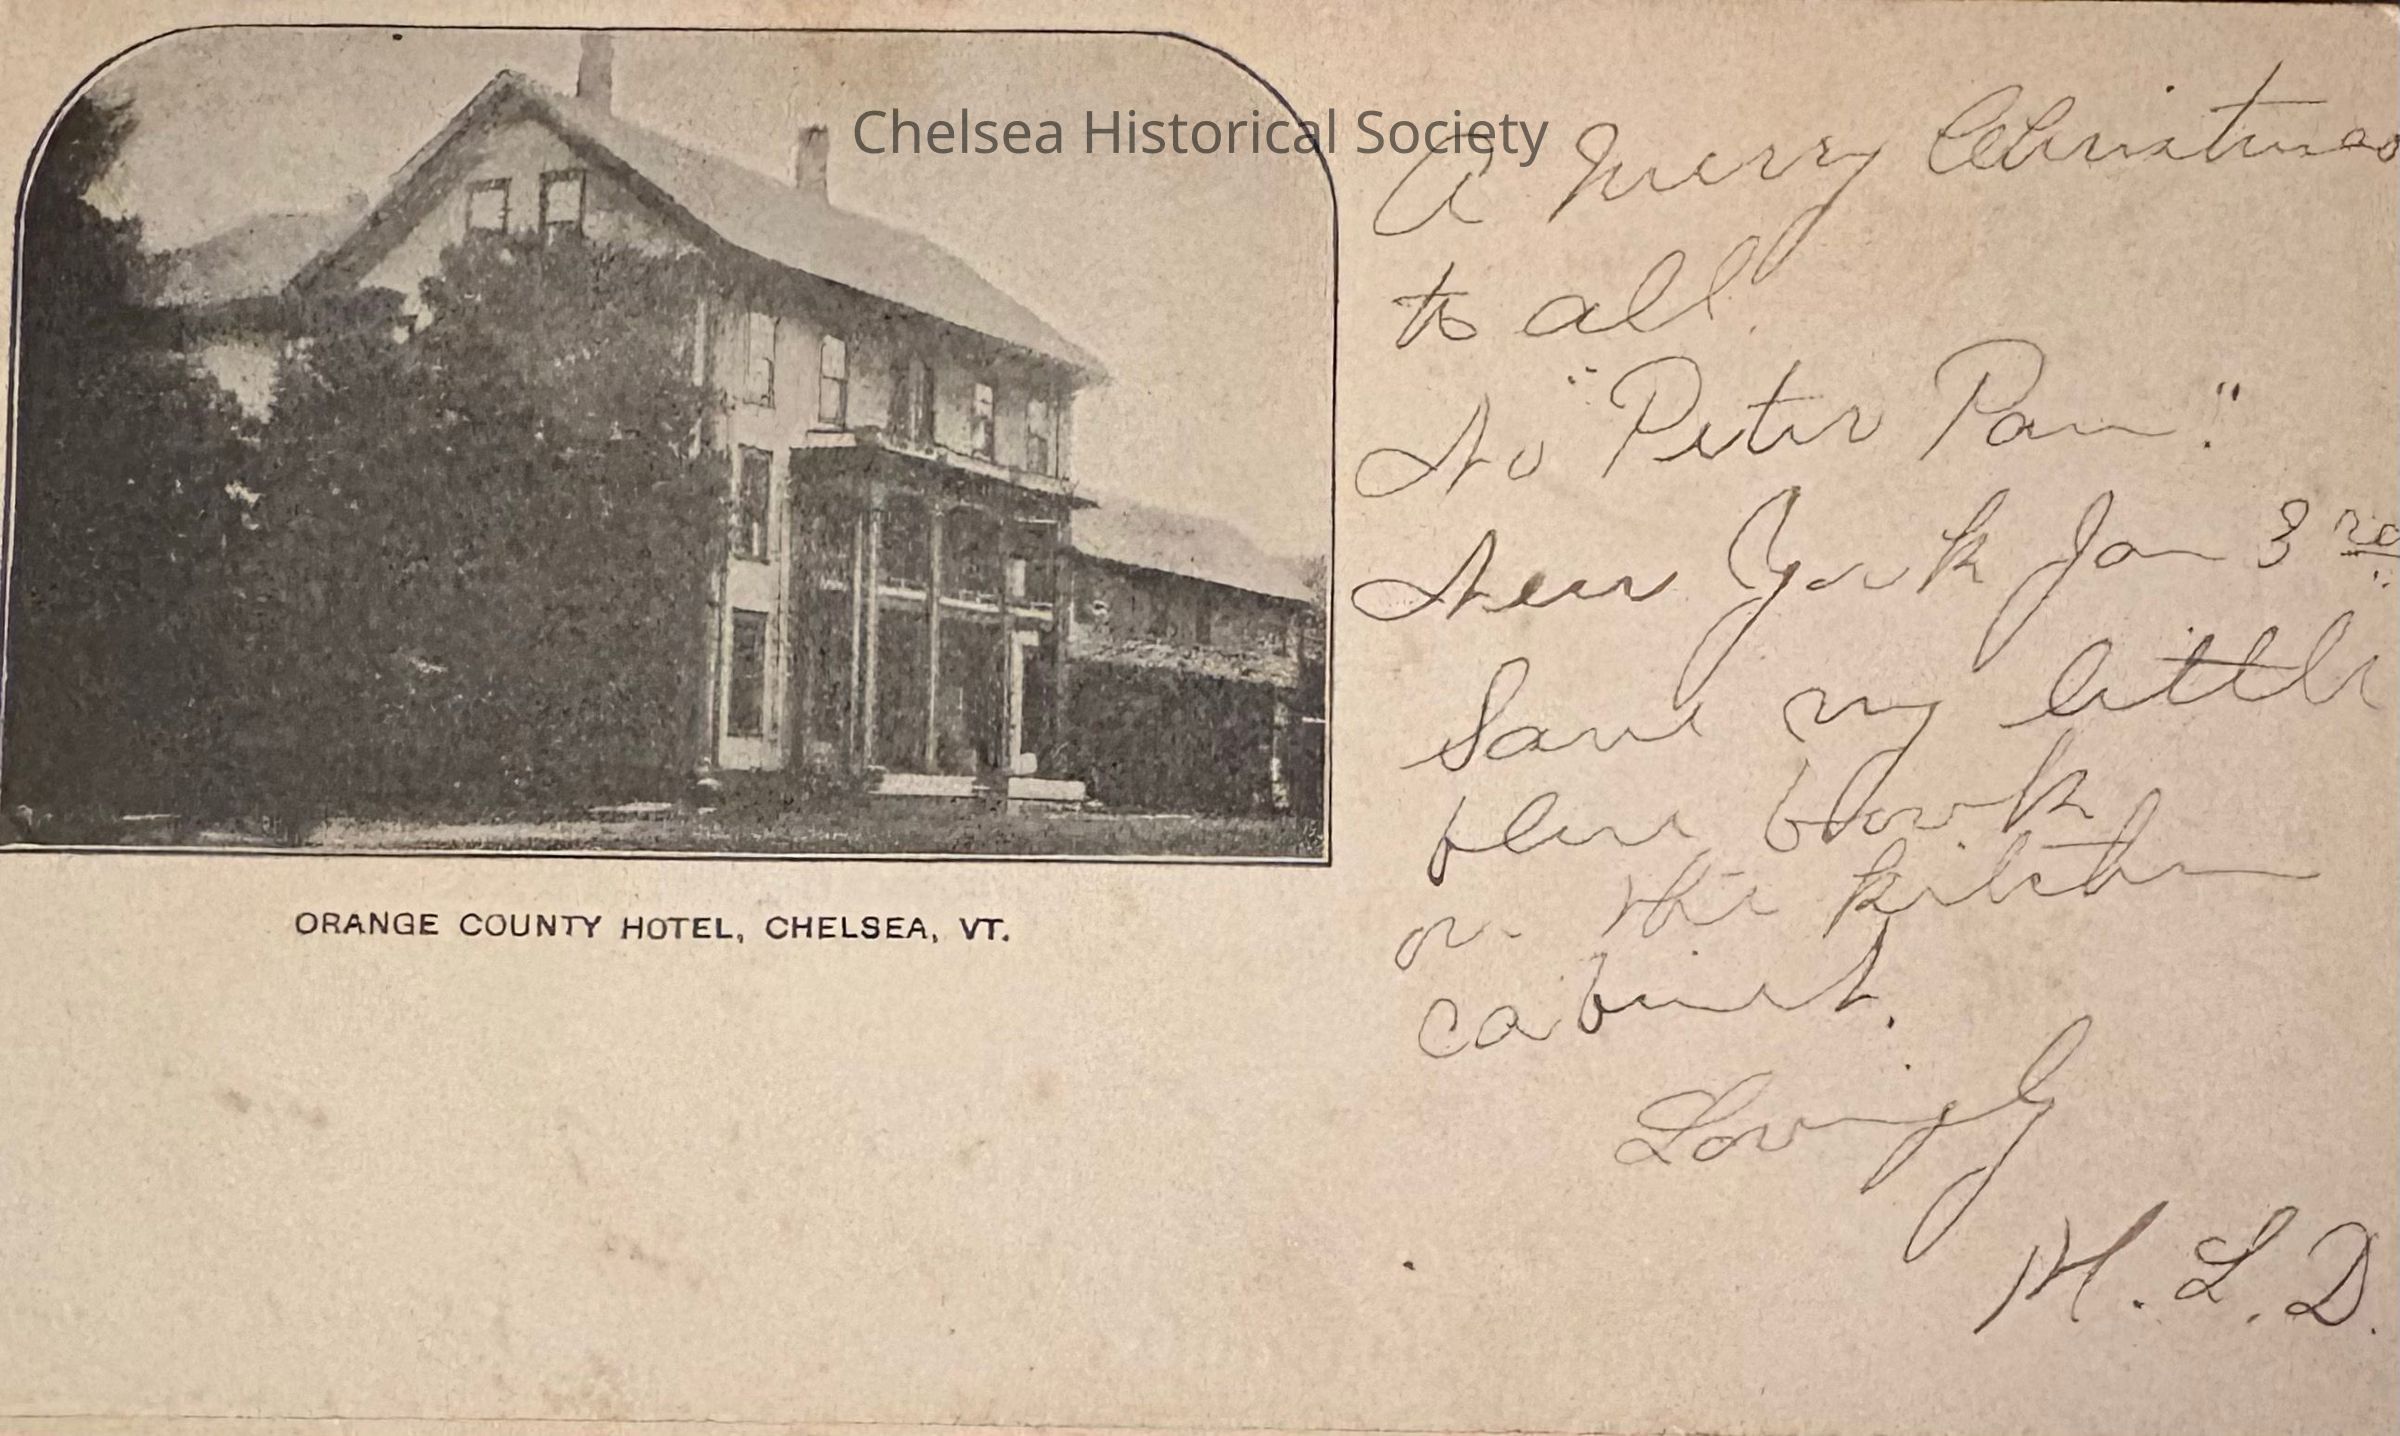 Chelsea Historical Society
A Merry Christmas
to all.
No "Peter Pan."
New York Jan 3rd
Save my little
blue book
on the kitchen
cabinet.
Lovingly
H. L. D.
ORANGE COUNTY HOTEL, CHELSEA, VT.